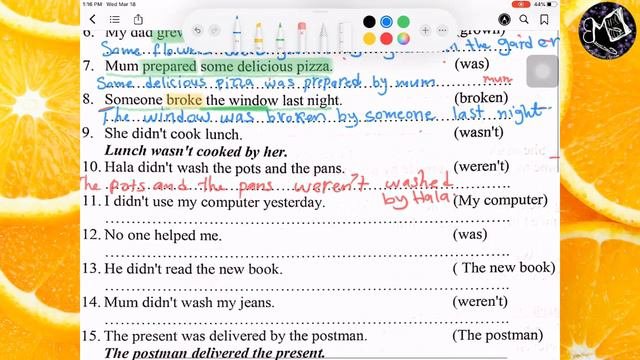 1:16 PM Wed Mar 18
44%
6. My dad grew (grown)
Some flowers the garden
7. Mum prepared some delicious pizza. (was)
Some delicious pizza was prepared by mum mum
8. Someone broke the window last night. (broken)
The window was broken by someone last night
9. She didn't cook lunch. (wasn't)
Lunch wasn't cooked by her.
10. Hala didn't wash the pots and the pans. (weren't)
The pots and the pans weren't washed
by Hala
11. I didn't use my computer yesterday. (My computer)
12. No one helped me. (was)
13. He didn't read the new book. ( The new book)
14. Mum didn't wash my jeans. (weren't)
15. The present was delivered by the postman. (The postman)
The postman delivered the present.